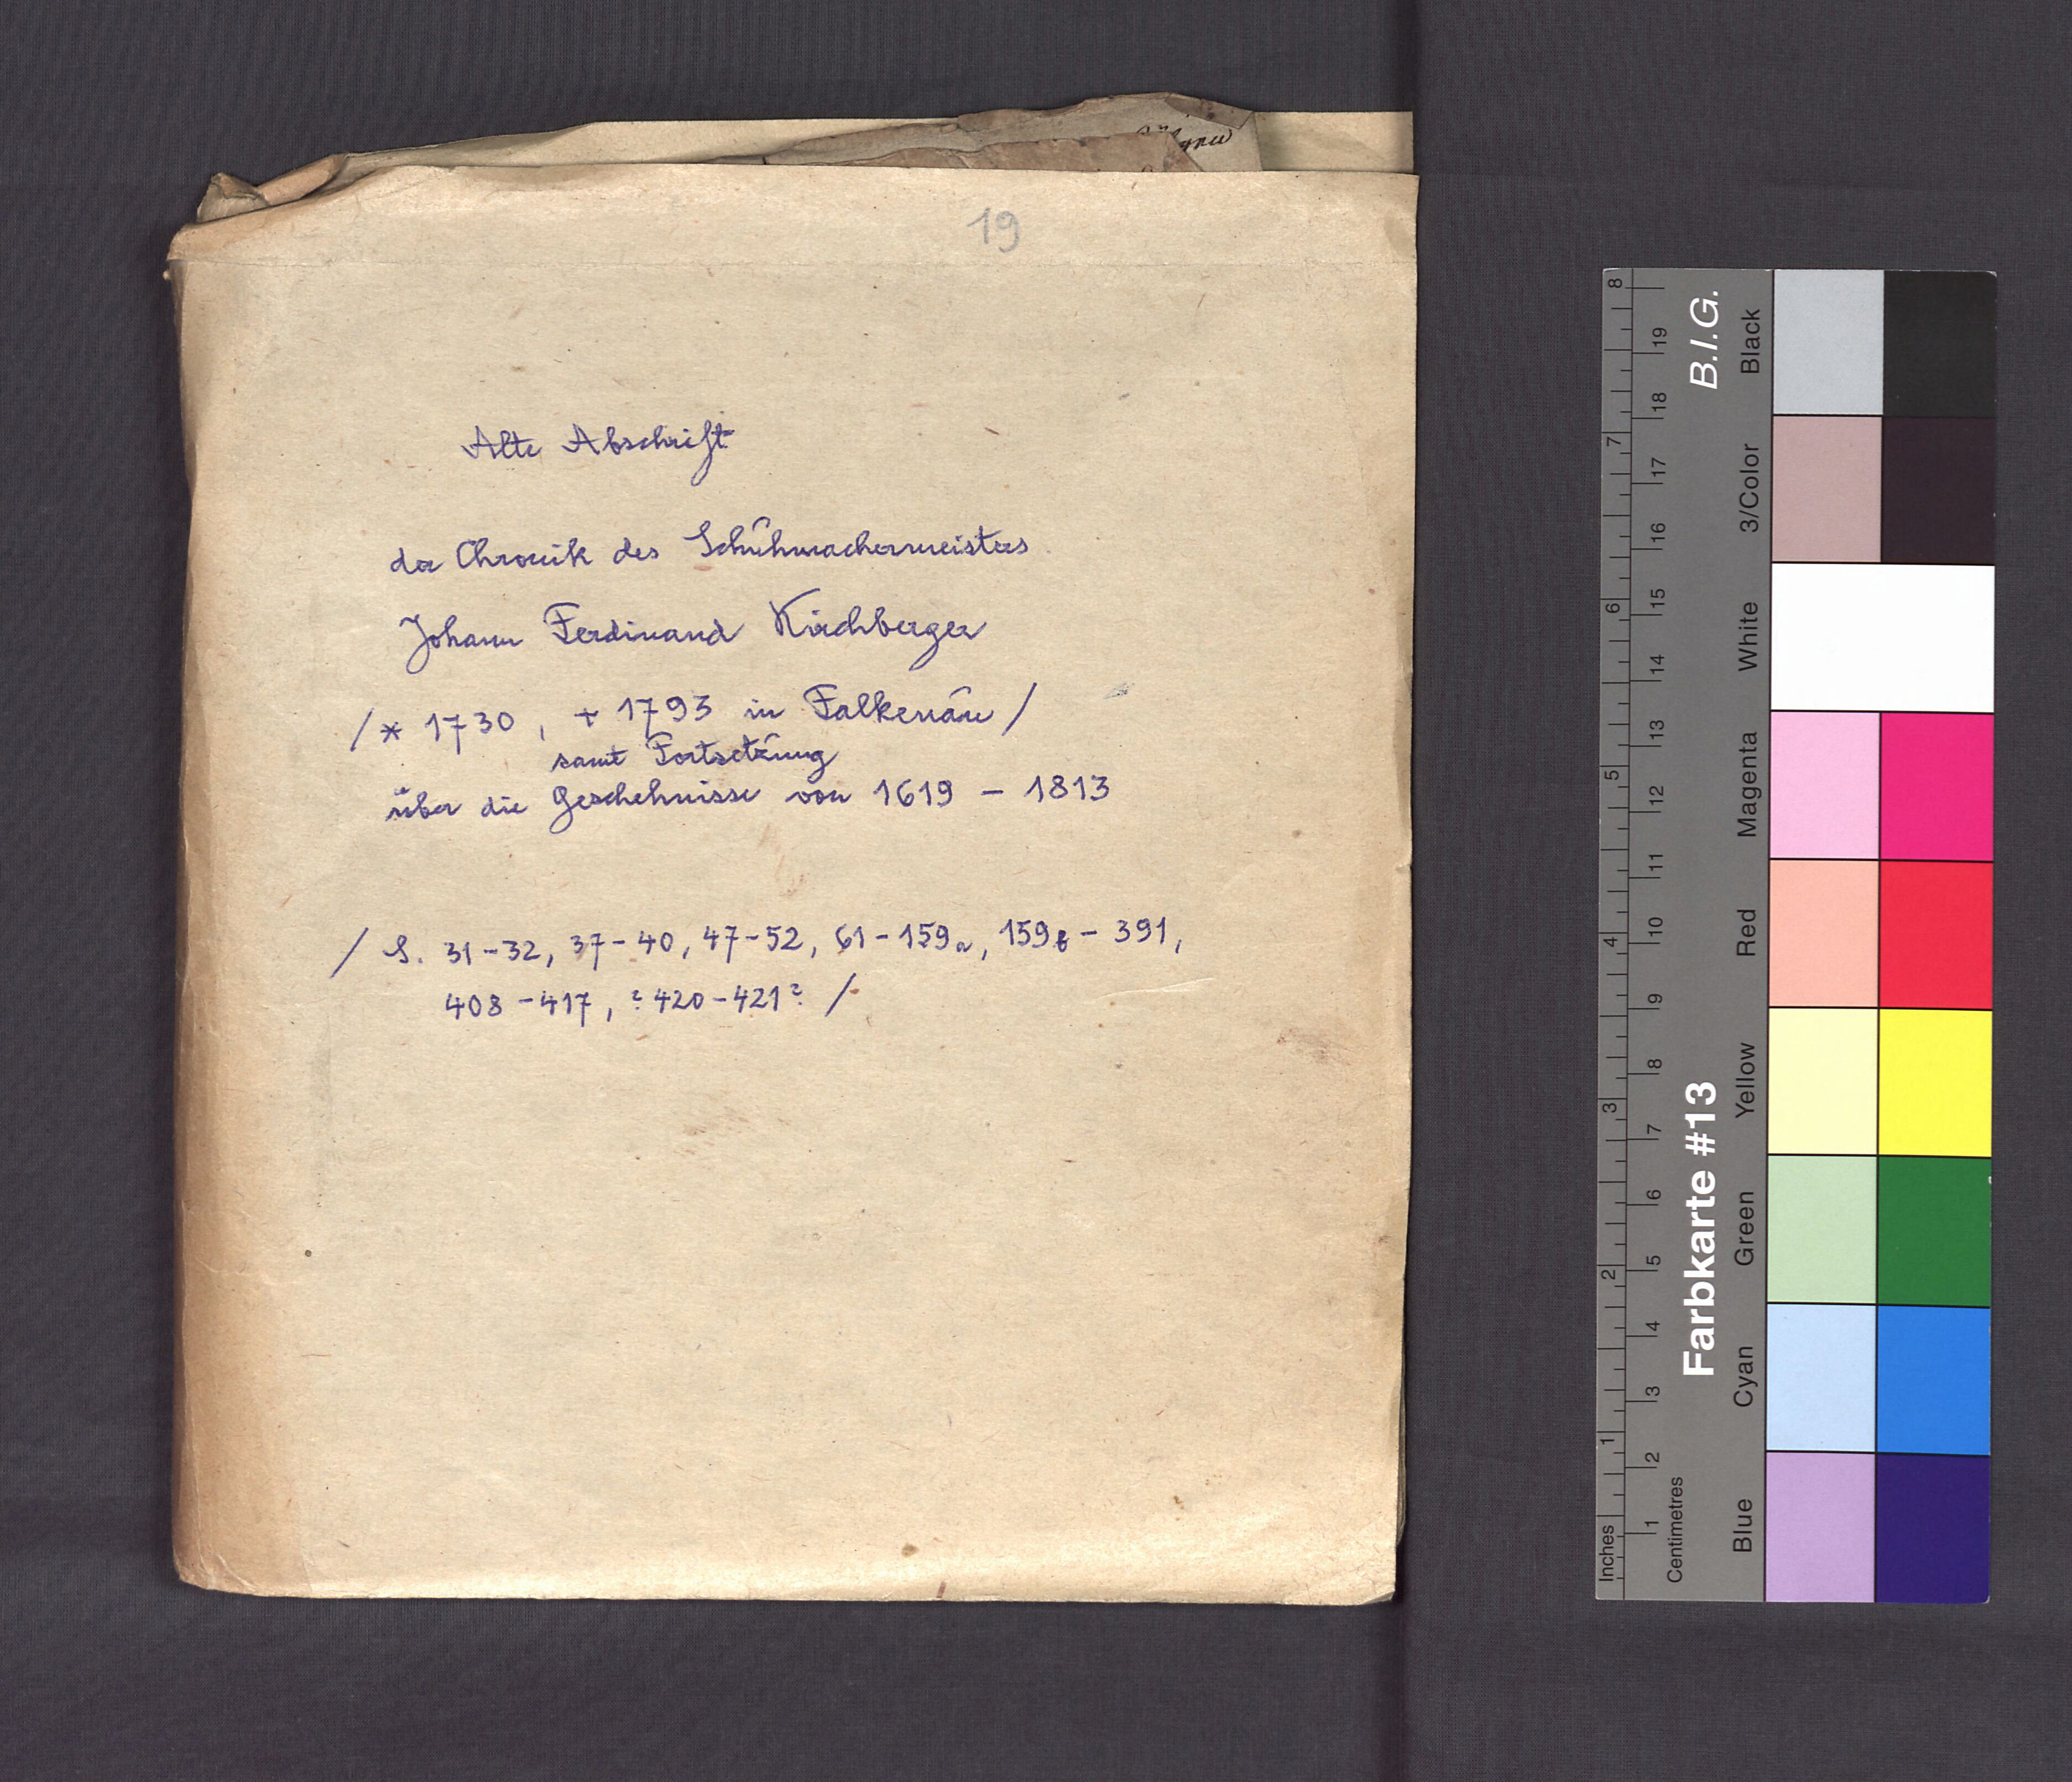 19
Alte Abschrift
der Chronik des Schuhmachermeisters
Johann Ferdinand Kirchberger
/* 1730, + 1793 in Falkenau/
samt Fortsetzung
über die Geschehnisse von 1619 – 1813
/ S. 31–32, 37–40, 47–52, 61–159a, 159b – 391,
408–417, ? 420–421? /
B.I.G.
Farbkarte #13
Black
3/Color
White
Magenta
Red
Yellow
Green
Cyan
Blue
8
7
6
5
4
3
2
1
Inches
19
18
17
16
15
14
13
12
11
10
9
8
7
6
5
4
3
2
1
Centimetres